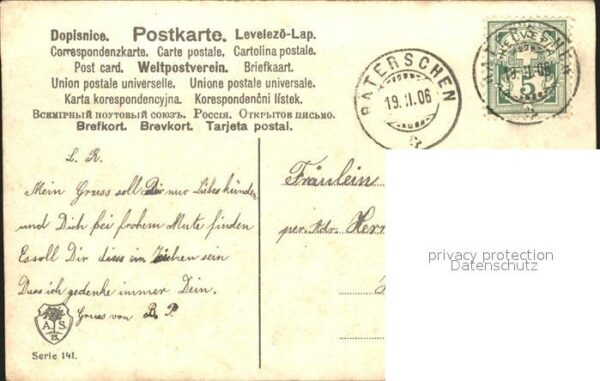 Dopisnice. Postkarte. Levelező-Lap.
Correspondenzkarte. Carte postale. Cartolina postale.
Post card. Weltpostverein. Briefkaart.
Union postale universelle. Unione postale universale.
Karta korespondencyjna. Korespondenční lístek.
Всемірный почтовый союзъ. Россія. Открытое письмо.
Brefkort. Brevkort. Tarjeta postal.
RATERSCHEN
19.II.06
HELVETIA
19.II.06
5
L. R.
Mein Gruss soll Dir nur Liebes künden
und Dich bei frohem Mute finden
Es soll Dir dies im Zeichen sein
Dass ich gedenke immer Dein.
Gruss von B. P.
Fräulein
per. Adr. Herr
privacy protection
Datenschutz
A. S.
B.
Serie 141.